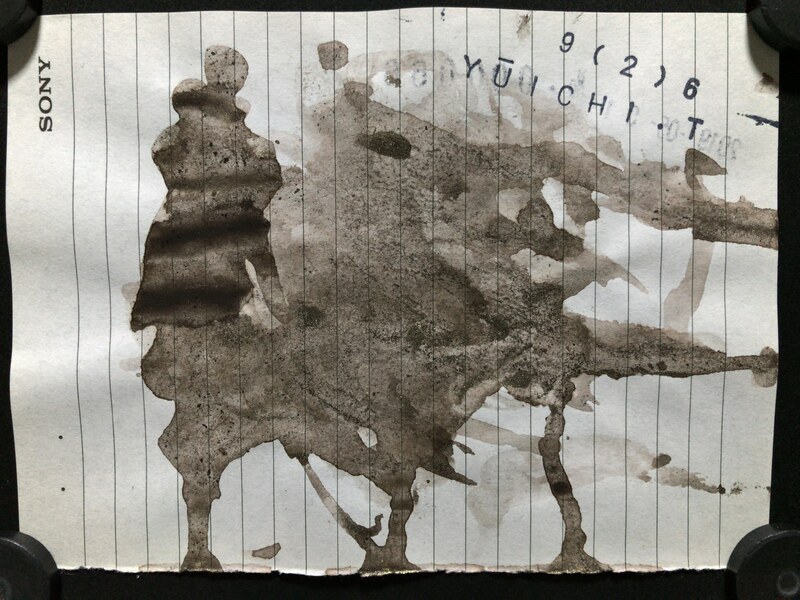 SONY
9(2)6
YŪICHI.T